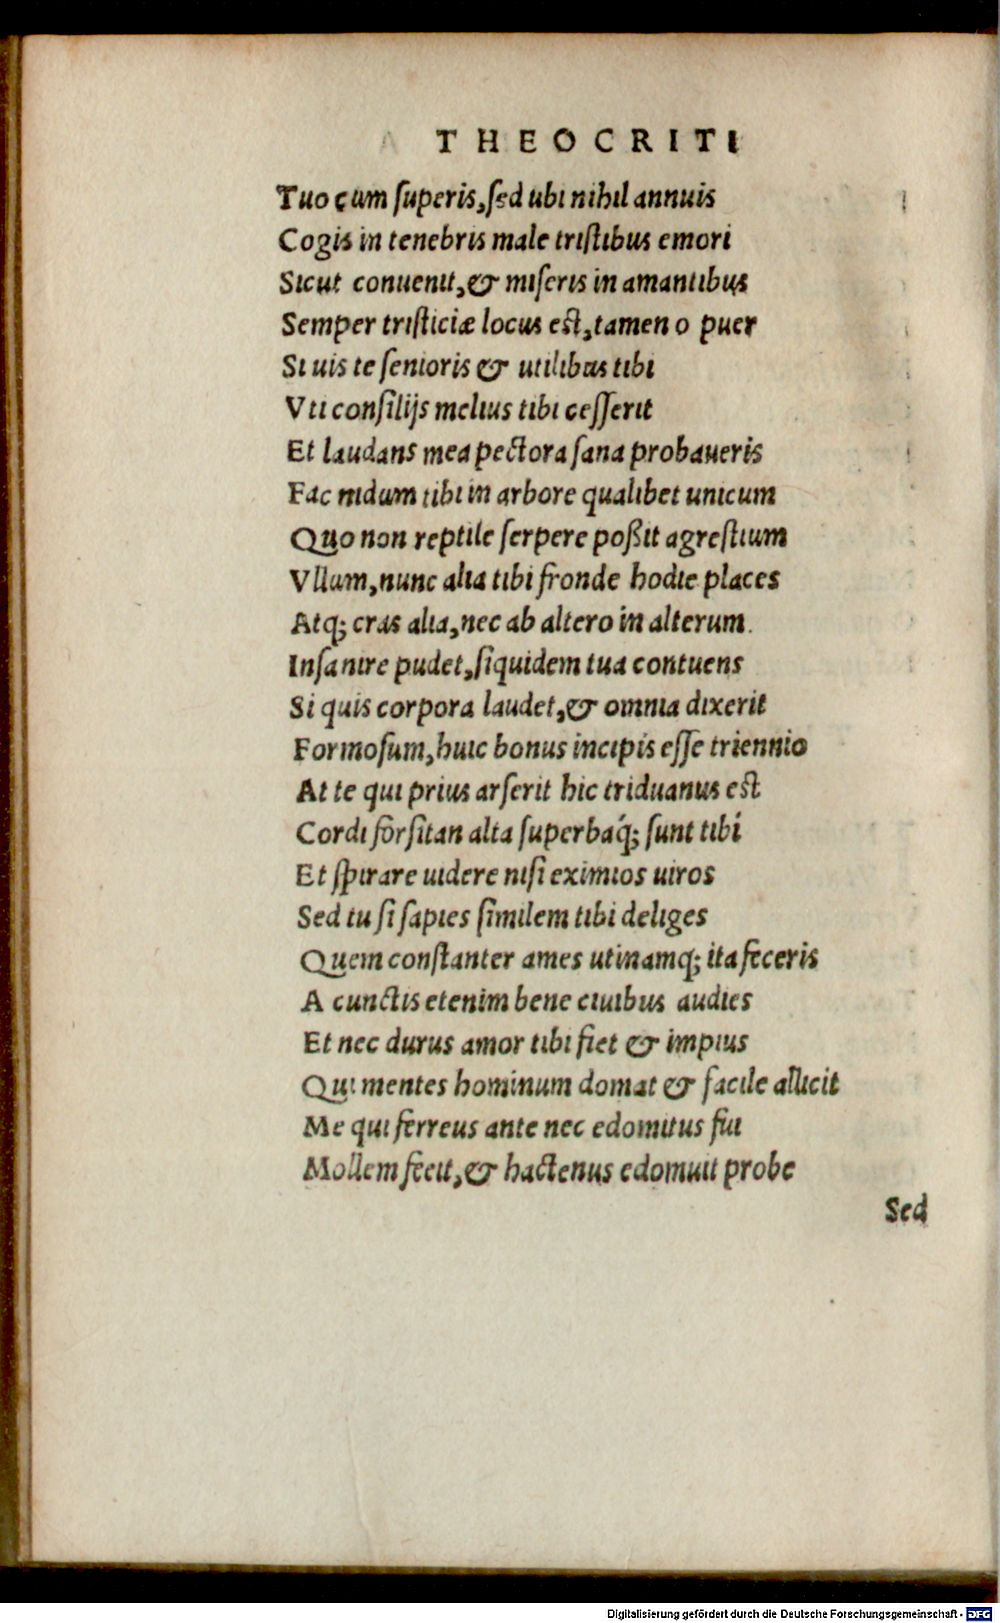 THEOCRITI
Tuo cum ſuperis, ſed ubi nihil annuis
Cogis in tenebris male triſtibus emori
Sicut conuenit, & miſeris in amantibus
Semper triſticiæ locus eſt, tamen o puer
Si uis te ſenioris & utilibus tibi
Vti conſilijs melius tibi ceſſerit
Et laudans mea pectora ſana probaueris
Fac nidum tibi in arbore qualibet unicum
Quo non reptile ſerpere poßit agreſtium
Vllum, nunc alia tibi fronde hodie places
Atq; cras alia, nec ab altero in alterum.
Inſanire pudet, ſiquidem tua contuens
Si quis corpora laudet, & omnia dixerit
Formoſum, huic bonus incipis eſſe triennio
At te qui prius arſerit hic triduanus eſt
Cordi forſitan alta ſuperbaq́; ſunt tibi
Et ſpirare uidere niſi eximios uiros
Sed tu ſi ſapies ſimilem tibi deliges
Quem conſtanter ames utinamq; ita feceris
A cunctis etenim bene ciuibus audies
Et nec durus amor tibi fiet & impius
Qui mentes hominum domat & facile allicit
Me qui ferreus ante nec edomitus fui
Mollem fecit, & hactenus edomuit probe
Sed
Digitalisierung gefördert durch die Deutsche Forschungsgemeinschaft - DFG